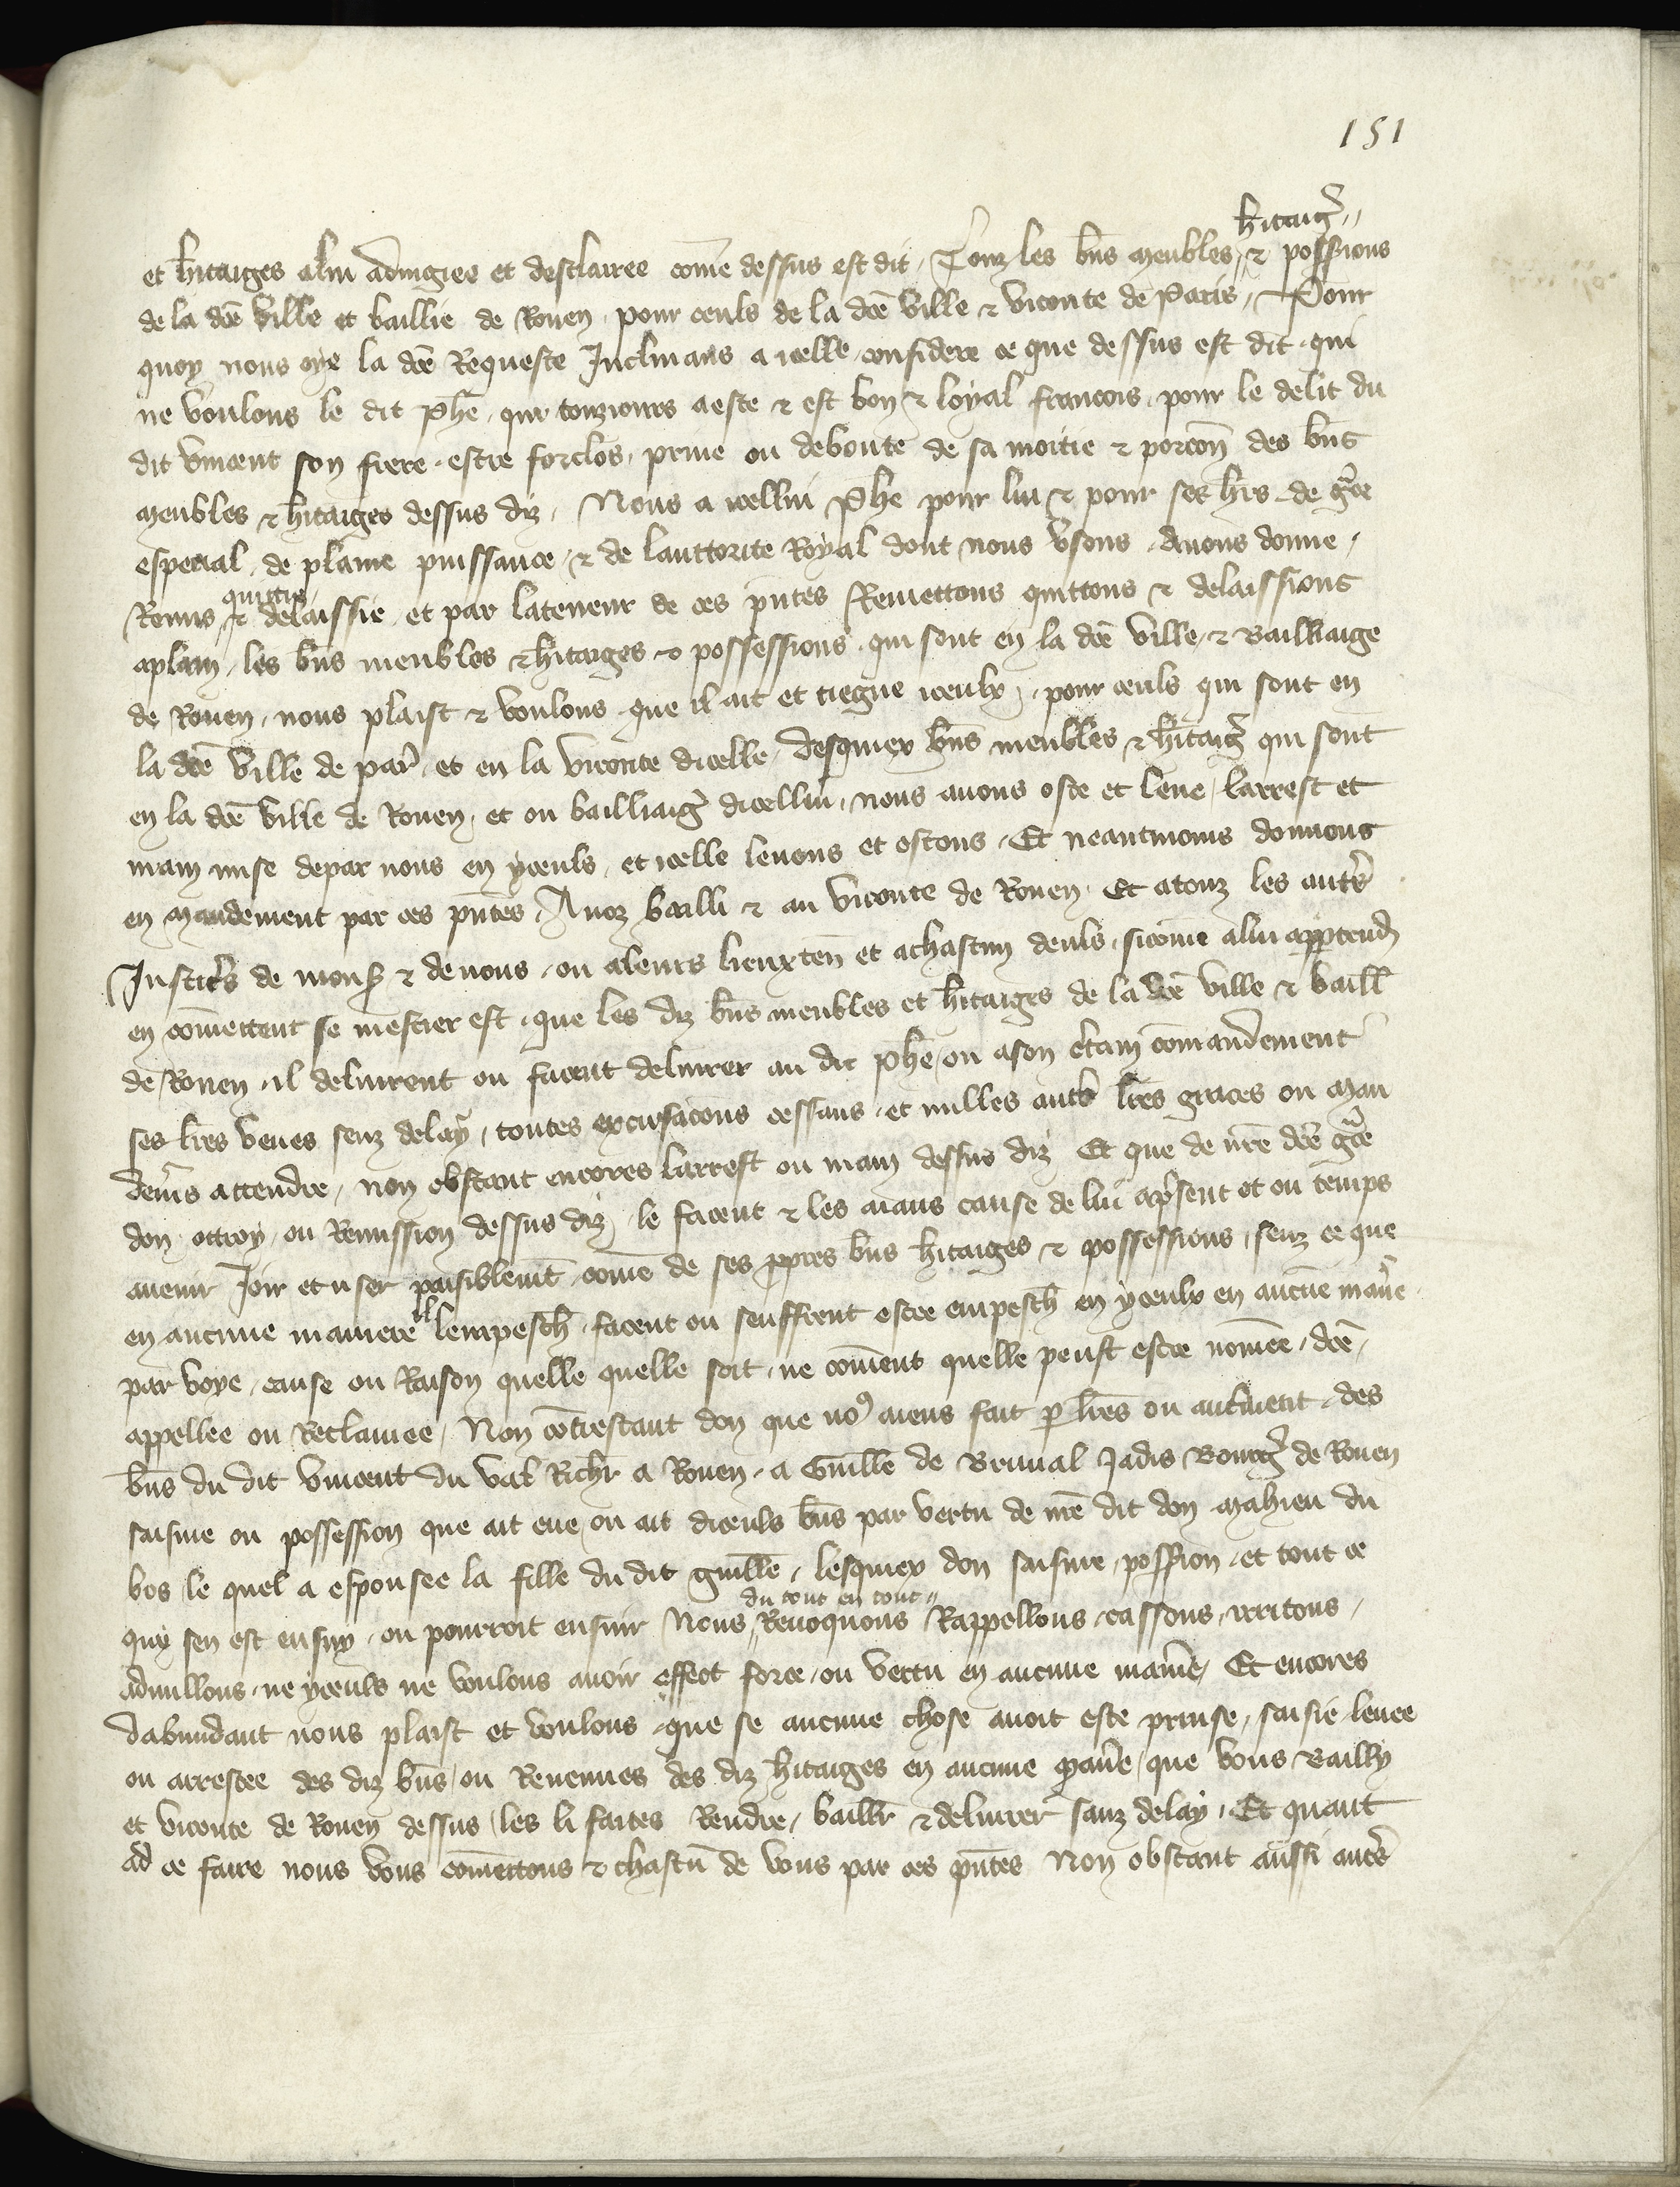 151
hitaig̃
et hitaiges alui adiugiee et desclairee com̃e dessus est dit. Touz les bñs meubles & possions
de la dc̃e ville et baillie de Rouen pour ceuls de la dc̃e ville & viconte de Paris. Pour
quoy nous oye la dc̃e Requeste Inclinans a icelle considere ce que dessus est dit qui
ne voulons le dit Phẽ que touziours a este & est bon & loyal francois pour le delit du
dit vincent son frere estre forclos priue ou deboute de sa moitie & porcõn des bñs
meubles & hitaiges dessus diz. Nous a icellui Phẽ pour lui & pour ses hr̃s de gr̃ce
especial de plaine puissance & de lauttorite Royal dont nous vsons auons donne
quittie
Remis & delaissie et par la teneur de ces pñtes Remettons quittons & delaissions
aplain les bñs meubles & hitaiges & possessions qui sont en la dc̃e ville & Bailliaige
de Rouen nous plaist & voulons que il ait et tiegne iceulx pour ceuls qui sont en
la dc̃e ville de par̃ et en la viconte dicelle desquiex bñs meubles & hitaig̃ qui sont
en la dc̃e ville de Rouen et ou bailliaig̃ dicellui nous auons oste et leue larrest et
main mise depar nous en yceuls et icelle leuons et ostons. Et neantmoins donnons
en mandement par ces pñtes Anoz bailli & au viconte de Rouen Et atouz les autr̃
Justic̃s de mons̃ & de nous ou aleurs lieuxteñ et achascun deuls sicom̃e alui appartend̃
en com̃ettent se mestier est que les diz bñs meubles et hitaiges de la dc̃e ville & baill̃
de Rouen il deliurent ou facent deliurer au dit phẽ ou ason c̃tain com̃andement
ses lr̃es veues senz delay toutes excusacõns cessans et nulles autr̃ lr̃es graces ou man
demẽs attendre non obstant encores larrest ou main dessus diz Et que de nr̃e dc̃e gr̃ce
don ottroy ou Remission dessus diz le facent & les aians cause de lui ap̃sent et ou temps
auenir Joir et user paisiblemt̃ com̃e de ses ppres bñs hitaiges & possessions senz ce que
en aucune maniere il lempesch̃ facent ou seuffrent estre empesch̃ en yceulx en aucune mañe
par voye cause ou Raison quelle quelle soit ne com̃ent quelle peust estre nom̃ee dc̃e
appellee ou Reclamee Non cõtrestant don que no9 aiens fait p lr̃es ou autremẽt des
bñs du dit vincent du val Richr̃ a Rouen a Guill̃e de Brunal Jadis Bourg̃ de Rouen
saisine ou possession que ait eue ou ait diceuls bñs par vertu de nr̃e dit don mahieu du
bos le quel a espousee la fille du dit guill̃e lesquiex don saisine possion et tout ce
du tout en tout
quy sen est ensuy ou pourroit ensuir Nous Reuoquons Rappellons cassons irritons
adnullons ne yceuls ne voulons auoir effect force ou vertu en aucune maniẽe Et encores
dabundant nous plaist et voulons que se aucune chose auoit este prinse saisie leuee
ou arrestee des diz bñs ou Reuenues des diz hitaiges en aucune mañe que vous Bailly
et viconte de Rouen dessus les li faites Rendre baillr̃ & deliurer sanz delay. Et quant
ad ce faire nous vous com̃ettons & chascũ de vous par ces pñtes Non obstant aussi autr̃